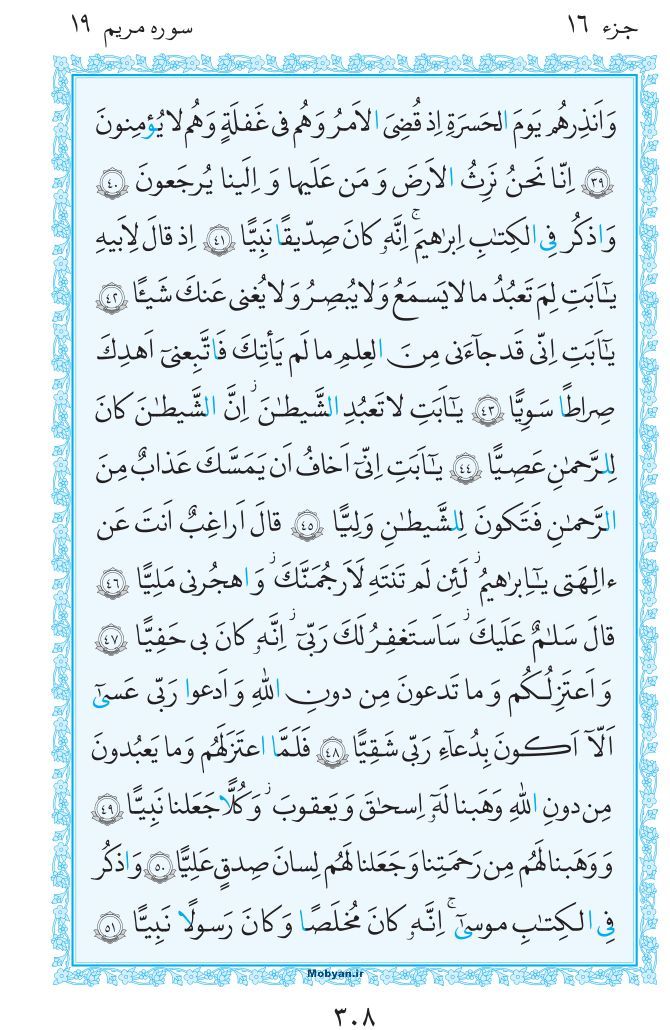 جزء ۱۶
سوره مریم ۱۹
وَ اَنذِرهُم يَومَ الحَسرَةِ اِذ قُضِىَ الاَمـرُ وَ هُم فى غَفلَةٍ وَ هُم لا يُؤمِنونَ
﴿٣٩﴾ اِنّا نَحنُ نَرِثُ الاَرضَ وَ مَن عَلَيها وَ اِلَينا يُرجَعونَ ﴿٤٠﴾
وَ اذكُر فِى الكِتٰبِ اِبرٰهيمَ ۚ اِنَّهٗ كانَ صِدّيقًا نَبِيًّا ﴿٤١﴾ اِذ قالَ لِاَبيهِ
يٰٓاَبَتِ لِمَ تَعبُدُ ما لا يَسمَعُ وَ لا يُبصِـرُ وَ لا يُغنى عَنكَ شَيـًٔا ﴿٤٢﴾
يٰٓاَبَتِ اِنّى قَد جآءَنى مِنَ العِلمِ ما لَم يَأتِكَ فَاتَّبِعنىٓ اَهدِكَ
صِراطًا سَوِيًّا ﴿٤٣﴾ يٰٓاَبَتِ لا تَعبُدِ الشَّيطٰنَ ۖ اِنَّ الشَّيطٰنَ كانَ
لِلرَّحمٰنِ عَصِيًّا ﴿٤٤﴾ يٰٓاَبَتِ اِنّىٓ اَخافُ اَن يَمَسَّكَ عَذابٌ مِنَ
الرَّحمٰنِ فَتَكونَ لِلشَّيطٰنِ وَلِيًّا ﴿٤٥﴾ قالَ اَراغِبٌ اَنتَ عَن
ءالِهَتى يٰـٓاِبرٰهيمُ ۖ لَئِن لَم تَنتَهِ لَاَرجُمَنَّكَ ۖ وَ اهجُرنى مَلِيًّا ﴿٤٦﴾
قالَ سَلٰمٌ عَلَيكَ ۖ سَاَستَغفِـرُ لَكَ رَبّىٓ ۖ اِنَّهٗ كانَ بى حَفِيًّا ﴿٤٧﴾
وَ اَعتَزِلُـكُم وَ ما تَدعونَ مِن دونِ اللّٰهِ وَ اَدعوا رَبّى عَسىٰٓ
اَلّآ اَكـونَ بِدُعآءِ رَبّى شَقِيًّا ﴿٤٨﴾ فَلَمَّا اعتَزَلَهُم وَ ما يَعبُدونَ
مِن دونِ اللّٰهِ وَهَبنا لَهٗٓ اِسحٰقَ وَ يَعقوبَ ۖ وَ كُلًّا جَعَلنا نَبِيًّا ﴿٤٩﴾
وَ وَهَبنا لَهُم مِن رَحمَتِنا وَ جَعَلنا لَهُم لِسانَ صِدقٍ عَلِيًّا ﴿٥٠﴾ وَ اذكُر
فِى الـكِتٰبِ موسىٰٓ ۚ اِنَّـهٗ كانَ مُخلَصًا وَ كانَ رَسولًا نَبِيًّا ﴿٥١﴾
Mobyan.ir
٣٠٨